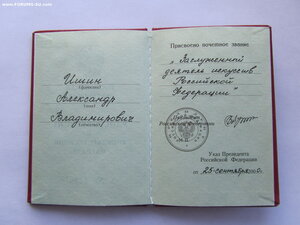 www.FORUMS-SU.com
Ишин
(фамилия)
Александр
(имя)
Владимирович
(отчество)
Присвоено почетное звание
„Заслуженный
деятель искусств
Российской
Федерации"
Президент
Российской Федерации
Указ Президента
Российской Федерации
от 25 сентября